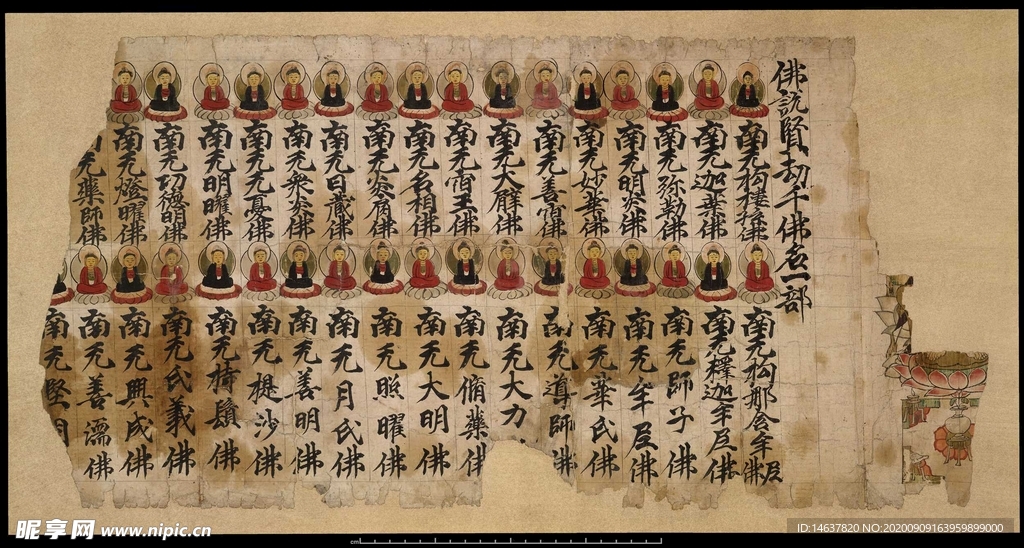 佛說賢劫千佛名一部
南无拘樓孫佛
南无迦葉佛
南无弥勒佛
南无明炎佛
南无妙華佛
南无善宿佛
南无大臂佛
南无宿王佛
南无名相佛
南无炎肩佛
南无日藏佛
南无衆炎佛
南无无憂佛
南无明曜佛
南无功德明佛
南无燈曜佛
无藥師佛
南无拘那含牟尼佛
南无釋迦牟尼佛
南无師子佛
南无牟尼佛
南无華氏佛
南无導師佛
南无大力佛
南无脩藥佛
南无大明佛
南无照曜佛
南无月氏佛
南无善明佛
南无提沙佛
南无持鬘佛
南无氏義佛
南无興成佛
南无善濡佛
南无堅明
昵享网 www.nipic.cn
ID:14637820 NO:20200909163959899000
cm